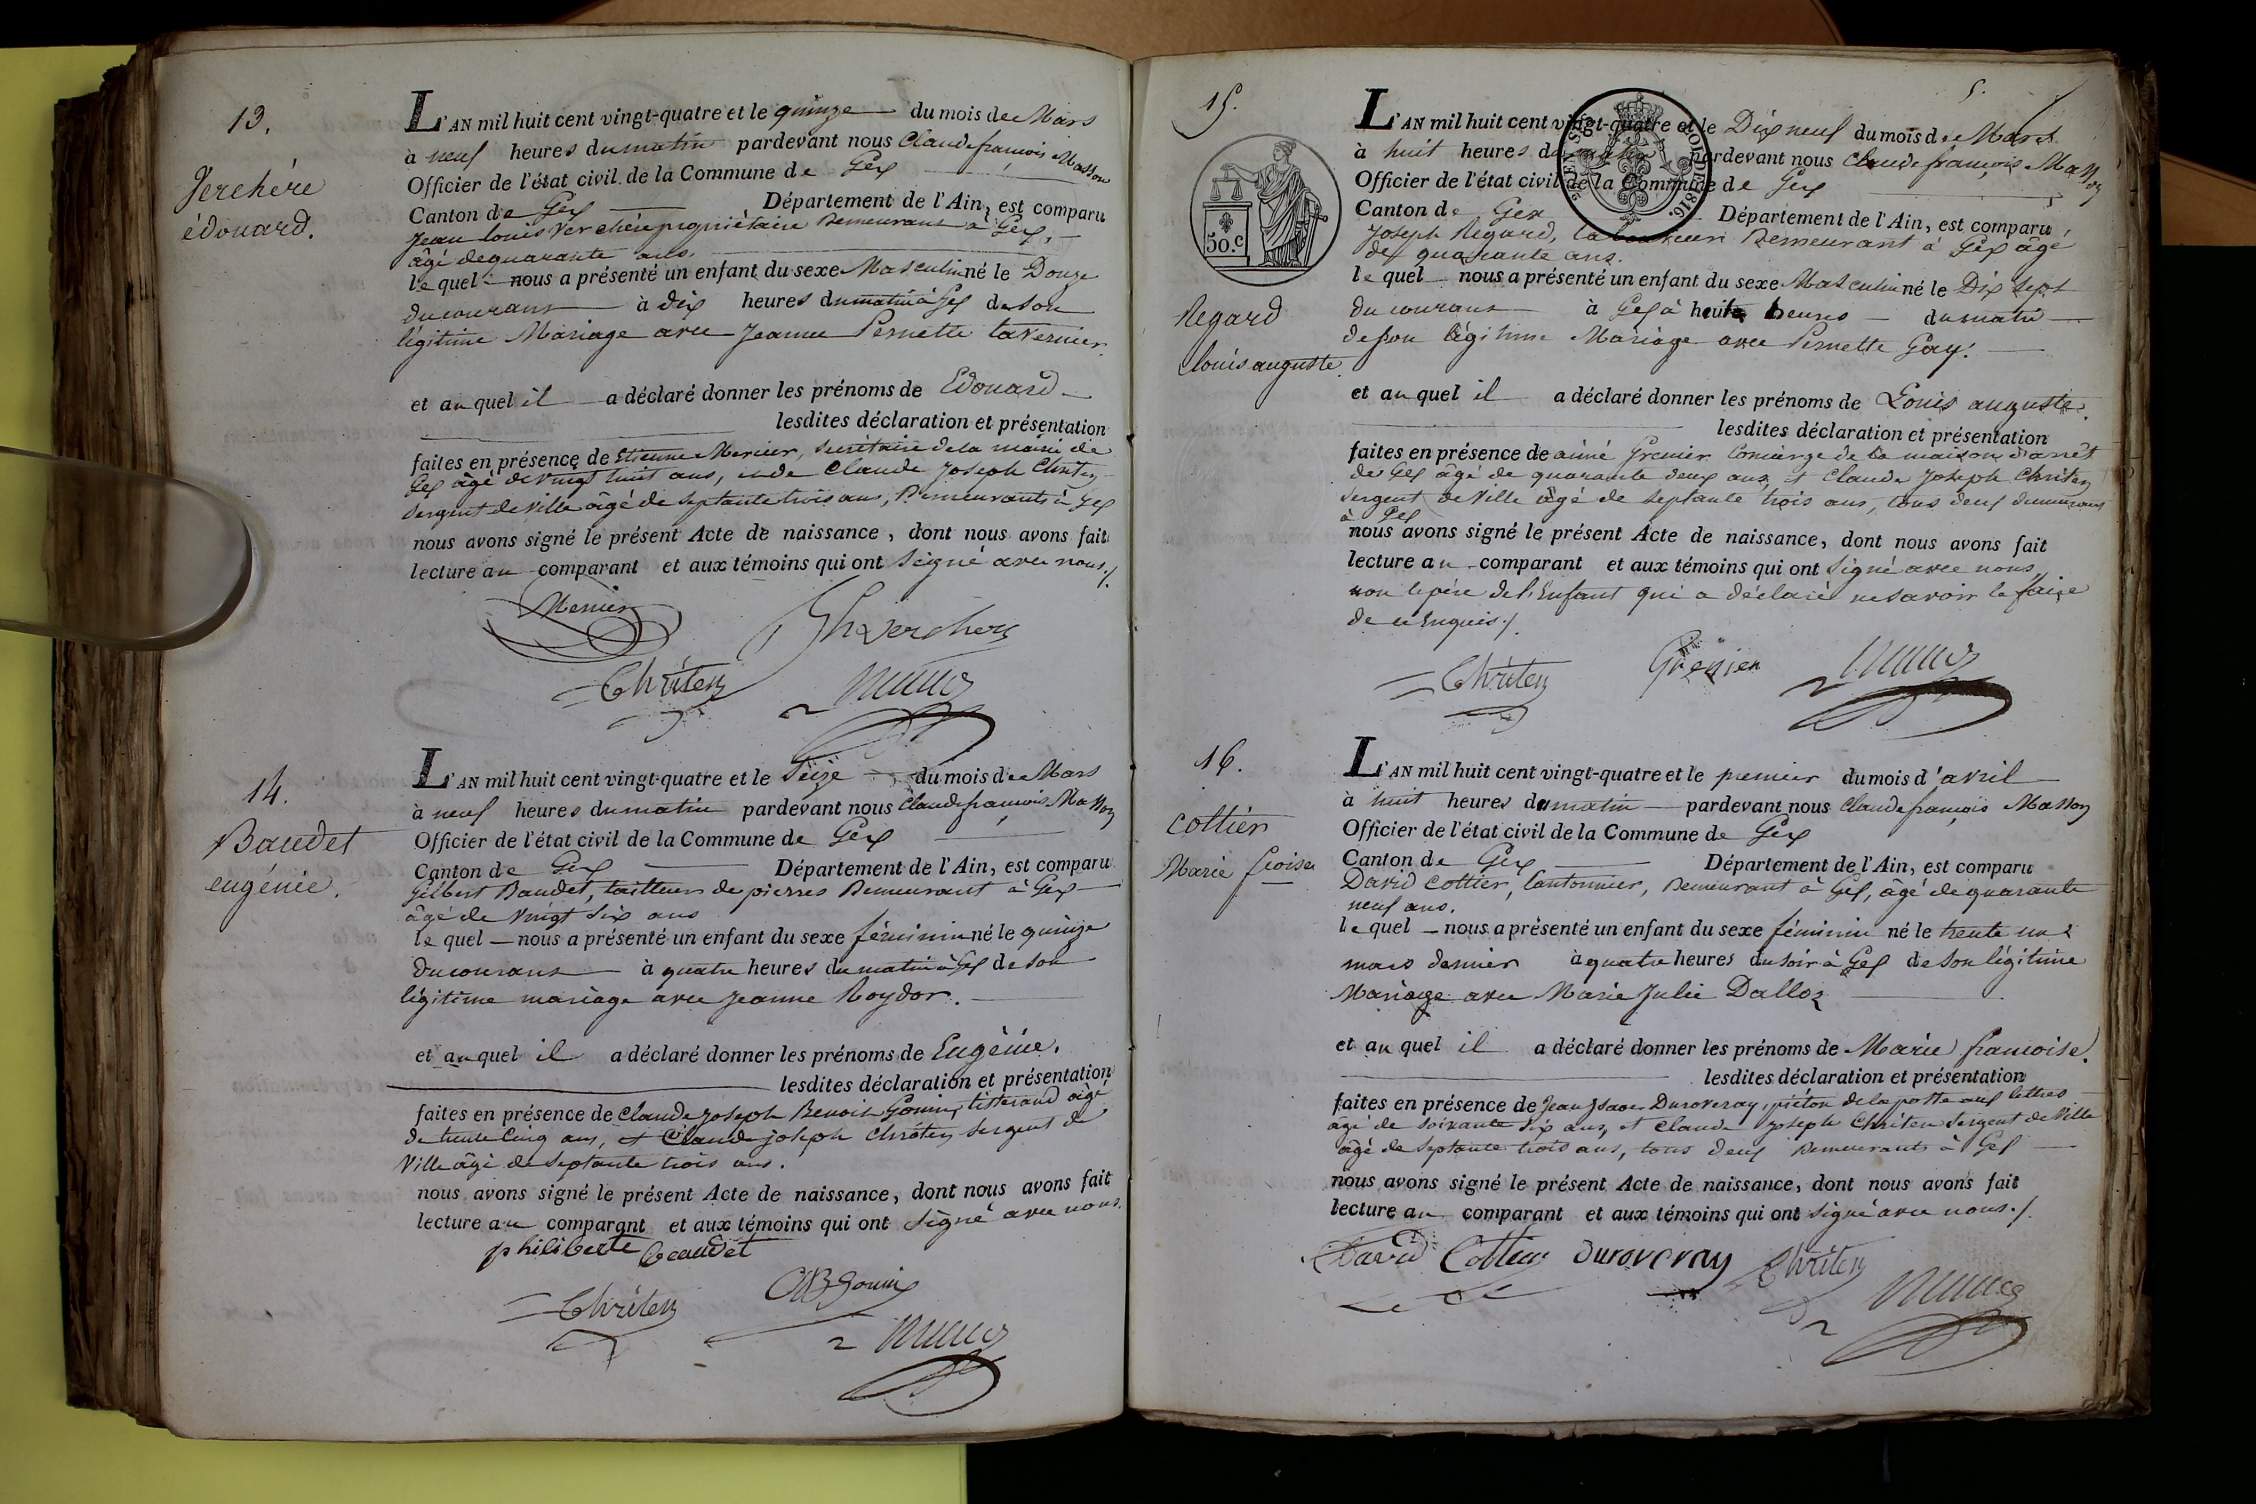 13.
Verchére
édouard.
L'AN mil huit cent vingt-quatre et le quinze du mois de Mars
à neuf heures du matin pardevant nous Claude françois Masson
Officier de l'état civil de la Commune de Gex
Canton de Gex Département de l'Ain, est comparu
Jean louis Verchére propriétaire Demeurant à Gex,
âgé de quarante ans.
le quel nous a présenté un enfant du sexe Masculin né le Douze
du courant à dix heures du matin à Gex de son
légitime Mariage avec Jeanne Pernette tavernier.
et au quel il a déclaré donner les prénoms de Edouard
lesdites déclaration et présentation
faites en présence de Etienne Mercier, secrétaire de la mairie de
Gex âgé de vingt huit ans, et de Claude Joseph Chriten
sergent de ville âgé de septante trois ans, Demeurants à Gex
nous avons signé le présent Acte de naissance, dont nous avons fait
lecture au comparant et aux témoins qui ont signé avec nous./
Mercier
Verchere
Chriten
14.
Baudet
eugénie.
L'AN mil huit cent vingt-quatre et le Seize du mois de Mars
à neuf heures du matin pardevant nous Claude françois Masson
Officier de l'état civil de la Commune de Gex
Canton de Gex Département de l'Ain, est comparu
Gilbert Baudet, tailleur de pierres Demeurant à Gex
âgé de vingt six ans
le quel nous a présenté un enfant du sexe féminin né le quinze
du courant à quatre heures du matin à Gex de son
légitime mariage avec Jeanne Roydor.
et au quel il a déclaré donner les prénoms de Eugénie.
lesdites déclaration et présentation
faites en présence de Claude Joseph Benoit Gonin, tisserand âgé
de trente cinq ans, et Claude joseph Chriten sergent de
Ville âgé de septante trois ans.
nous avons signé le présent Acte de naissance, dont nous avons fait
lecture au comparant et aux témoins qui ont signé avec nous.
philiberte Beaudet
Chriten
Gonin
15.
5.
50.c
SOL DE 1816.
Regard
louis auguste
L'AN mil huit cent vingt-quatre et le Dix neuf du mois de Mars
à huit heures du matin pardevant nous Claude françois Masson
Officier de l'état civil de la Commune de Gex
Canton de Gex Département de l'Ain, est comparu
Joseph Regard, laboureur Demeurant à Gex âgé
de quarante ans.
le quel nous a présenté un enfant du sexe Masculin né le Dix sept
du courant à Gex à huit heures du matin
de son légitime Mariage avec Pernette Gay.
et au quel il a déclaré donner les prénoms de Louis auguste.
lesdites déclaration et présentation
faites en présence de aimé Grenier Concierge de la maison d'arrêt
de Gex âgé de quarante deux ans, et Claude Joseph Chriten
sergent de Ville âgé de septante trois ans, tous deux demeurans
à Gex
nous avons signé le présent Acte de naissance, dont nous avons fait
lecture au comparant et aux témoins qui ont signé avec nous
non le père de l'Enfant qui a déclaré ne savoir le faire
de ce Enquis./
Chriten
Grenier
16.
Cottier
Marie froise
L'AN mil huit cent vingt-quatre et le premier du mois d'avril
à huit heures du matin pardevant nous Claude françois Masson
Officier de l'état civil de la Commune de Gex
Canton de Gex Département de l'Ain, est comparu
David Cottier, Cantonnier, Demeurant à Gex, âgé de quarante
neuf ans.
le quel nous a présenté un enfant du sexe féminin né le trente un
mars dernier à quatre heures du soir à Gex de son légitime
Mariage avec Marie Julie Dalloz
et au quel il a déclaré donner les prénoms de Marie françoise.
lesdites déclaration et présentation
faites en présence de Jean Isaac Duroveray, piéton de la poste aux lettres
âgé de soixante six ans, et Claude Joseph Chriten Sergent de Ville
âgé de septante trois ans, tous deux Demeurants à Gex
nous avons signé le présent Acte de naissance, dont nous avons fait
lecture au comparant et aux témoins qui ont signé avec nous./
David Cottier Duroveray Chriten